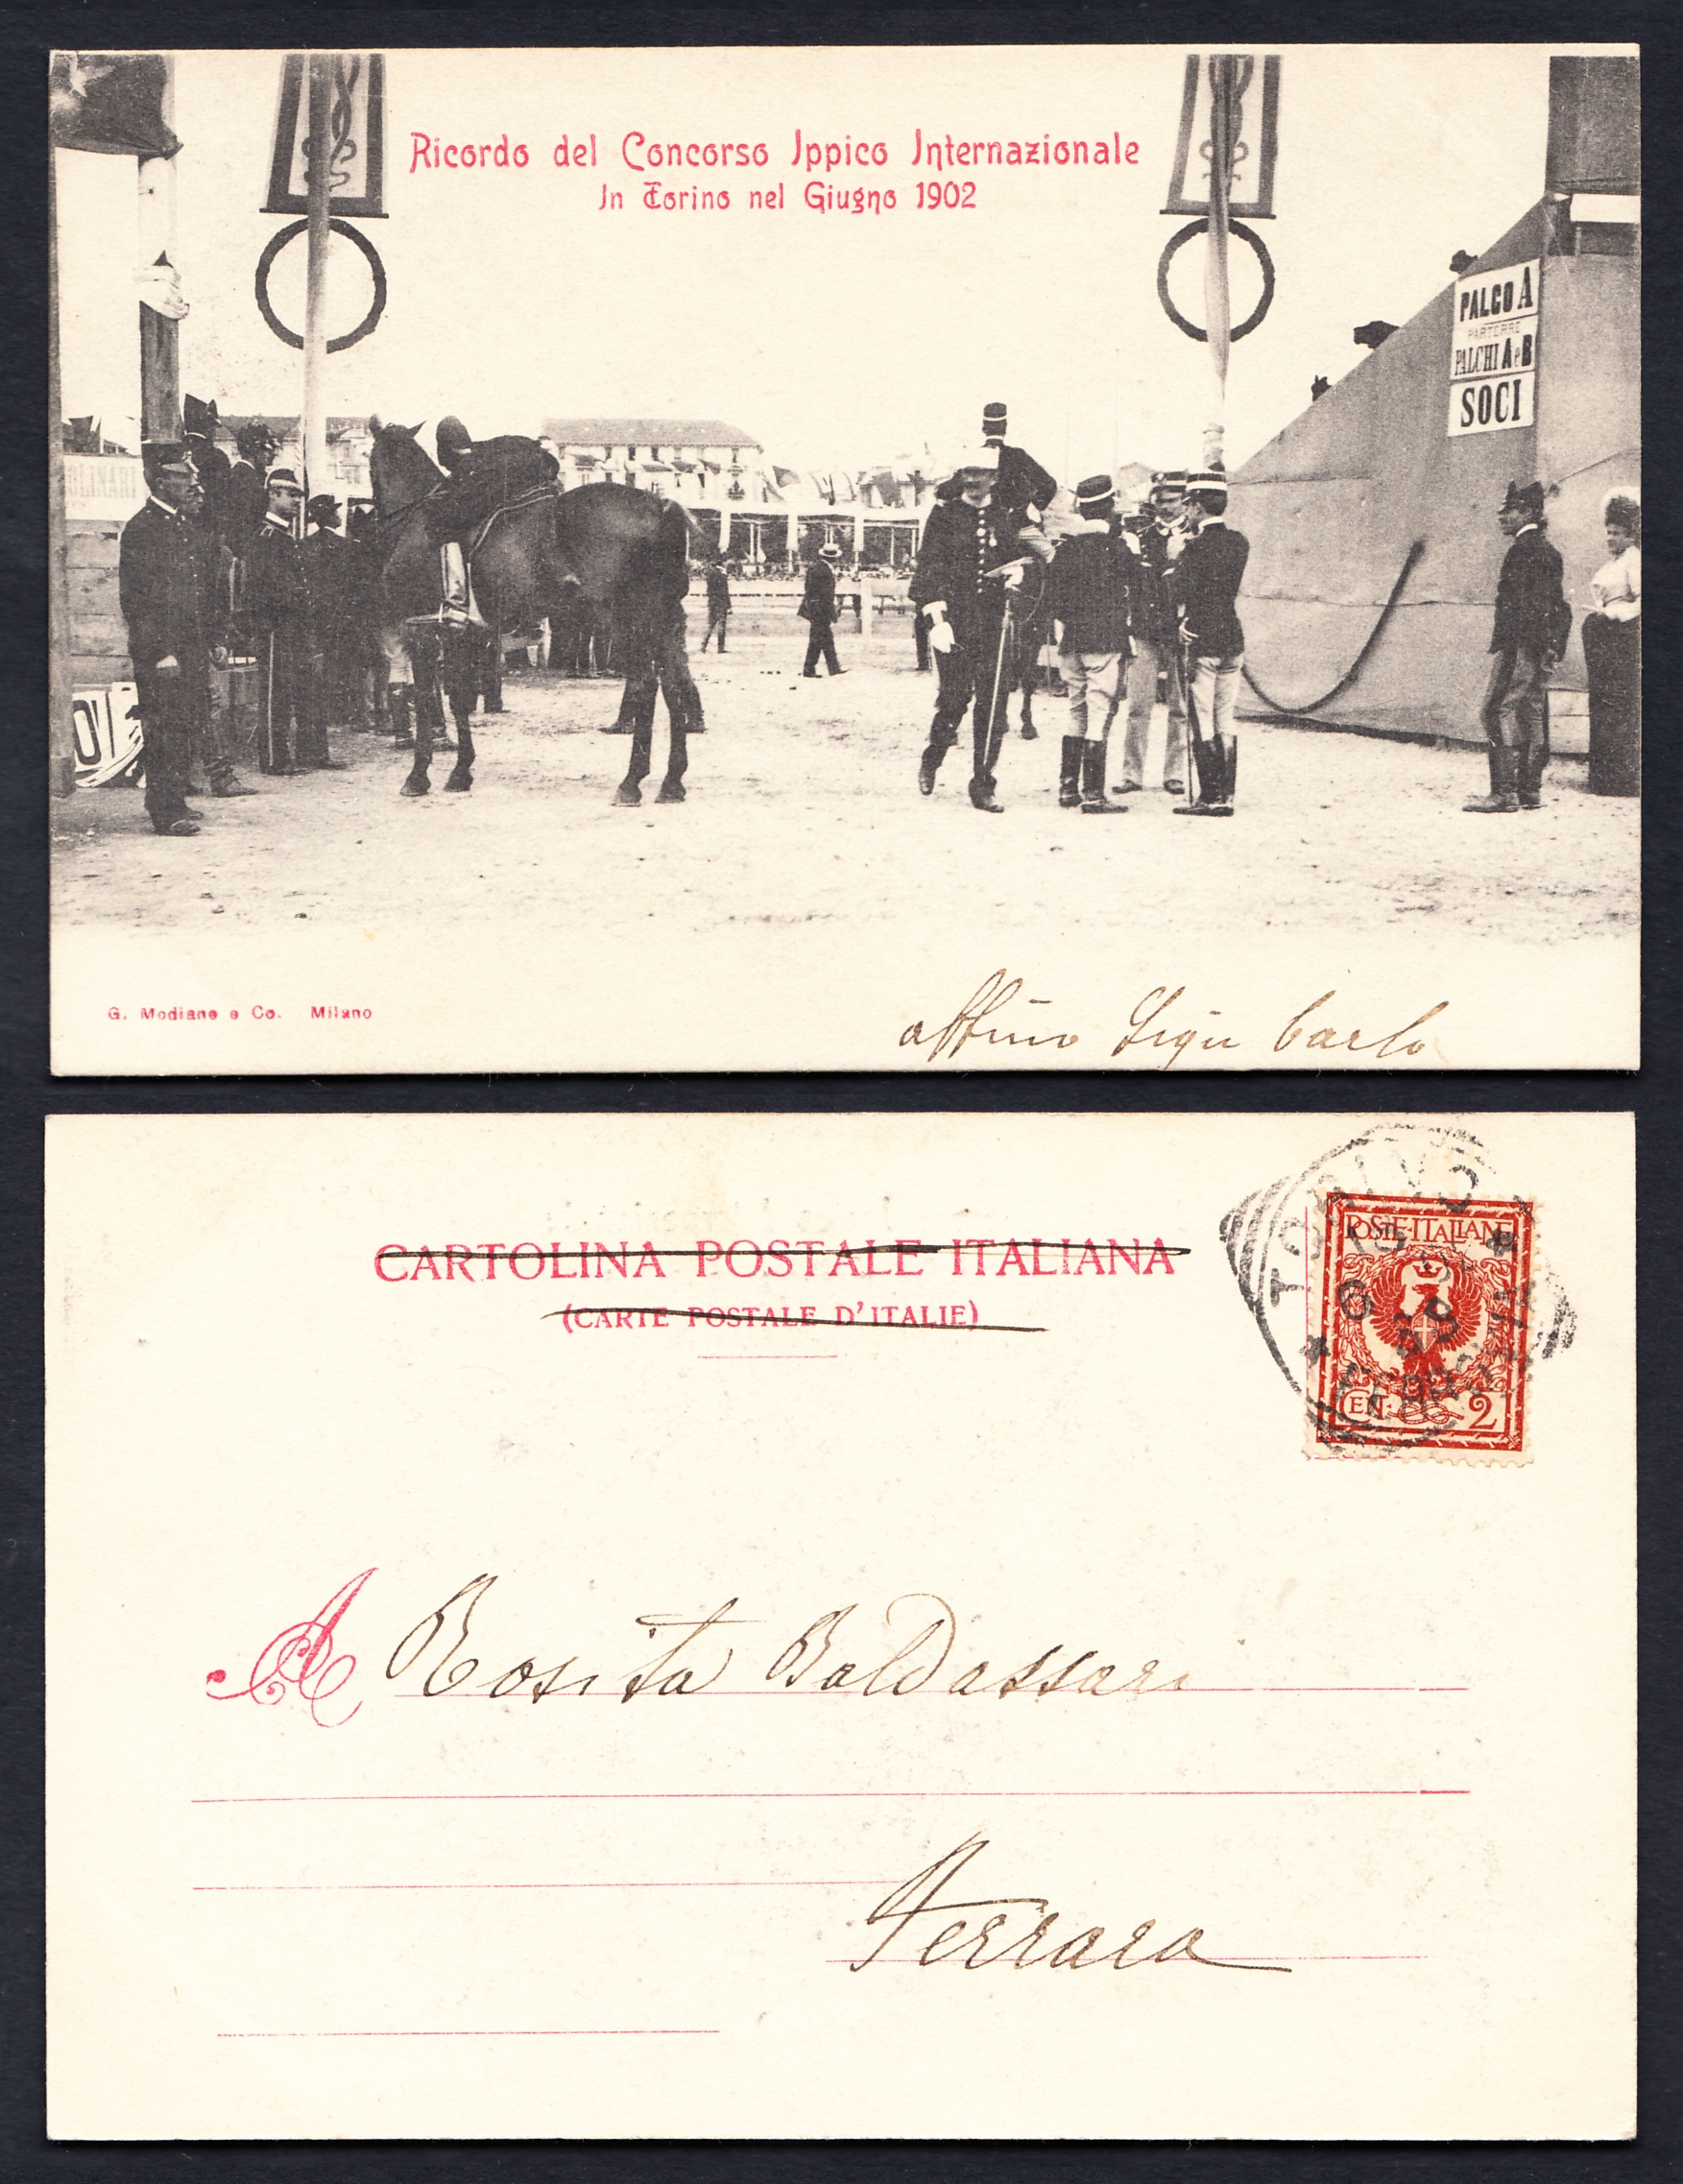 Ricordo del Concorso Ippico Internazionale
In Torino nel Giugno 1902
PALCO A
PARTERRE
PALCHI A e B
SOCI
OLINARI
G. Modiano e Co. Milano
affmo Sign Carlo
CARTOLINA POSTALE ITALIANA
(CARTE POSTALE D'ITALIE)
TORINO
POSTE·ITALIANE
CEN. 2
FERROVIA
A Rosita Baldassari
Ferrara